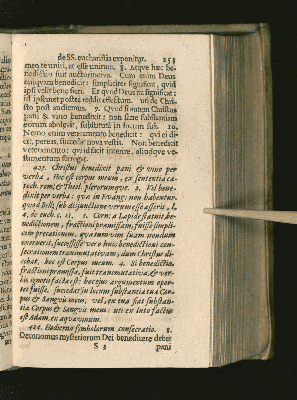 de SS. eucharistia exponitur. 253
meo te uniri, et esse unitum. 8. Atque hæc be-
nedictio fuit auctoritativa. Cum enim Deus
cuiquam benedicit: simpliciter significat, quod
ipsi velit benefieri. Et quod Deus ita significat:
id ipsum et postea reddit effectum. unde Chri-
sto post auditum. 9. Quod si autem Christus
pani & vino benedixit: non sane substantiam
eorum abolevit, substituta in locum sua. 10.
Nemo enim veteramento benedicit: qui id di-
cit, pereas, succedat nova vestis. Non benedicit
veteramento: qui id facit interire, aliudque ve-
stimentum surrogat.
423. Christus benedixit pani & vino per
verba, hoc est corpus meum, ex sententia ca-
tech. rom. & Theol. plerorumque. 2. Vel bene-
dixit per verba: qua in Evang. non habentur.
quod Bell. sub disjunctione verum esse asserit, l.
4. de euch. c. 13. 3. Corn. a Lapide statuit be-
nedictionem, fractioni præmissam, fuisse simpli-
cem precationem. qua tum vim suam nondum
exeruerit. successisse vero huic benedictioni con-
secrationem transmutativam; dum Christus di-
cebat, hoc est corpus meum. 4. Si benedictio,
fractioni præmissa, fuit transmutativa, & ver-
bis ignotis facta est: hoc ejus argumentum opor-
tet fuisse, succedat in locum substantia tua Cor-
pus & Sangvis meus. vel, ex tua fiat substan-
tia Corpus & Sangvis meus: uti ex luto factus
est Adam, ex aqua vinum.
424. Hodierna symbolorum consecratio. 1.
Oeconomus mysteriorum Dei benedicere debet
S 3 pani